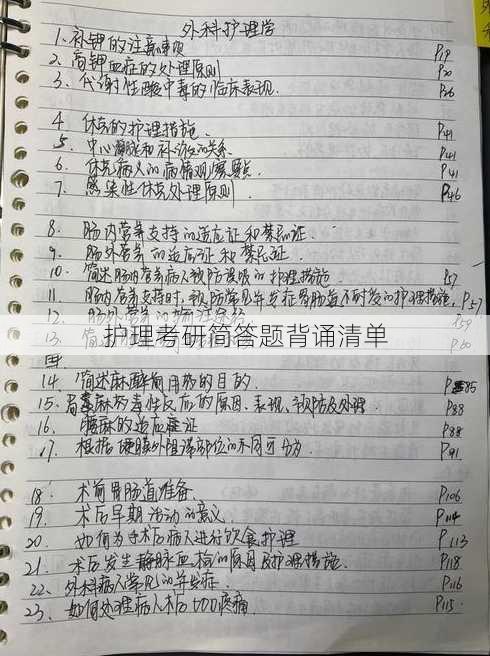 外科护理学
1、补钾的注意事项 P19
2、高钾血症的处理原则 P20
3、代谢性酸中毒的临床表现. P26
4、休克的护理措施. P41
5、中心静脉压和补液的关系 P41
6、休克病人的病情观察要点. P41
7、感染性休克处理原则. P46
8、肠内营养支持的适应证和禁忌证.
9、肠外营养的适应证和禁忌证.
10、简述肠内营养病人预防误吸的护理措施. P57
11、肠内营养支持时,预防常见并发症胃肠道不耐受的护理措施. P57
12、肠外营养的 P59
13、简
护理考研简答题背诵清单
14、简述麻醉前用药的目的. P85
15、局麻药毒性反应的原因、表现、预防及处理. P88
16、腰麻的适应症证 P88
17、根据硬膜外阻滞部位的不同可分为. P91
18、术前胃肠道准备. P106
19、术后早期活动的意义. P114
20、如何为手术后病人进行饮食护理 P113
21、术后发生静脉血栓的原因及护理措施. P118
22、外科病人常见的并发症. P116
23、如何处理病人术后切口疼痛. P115.